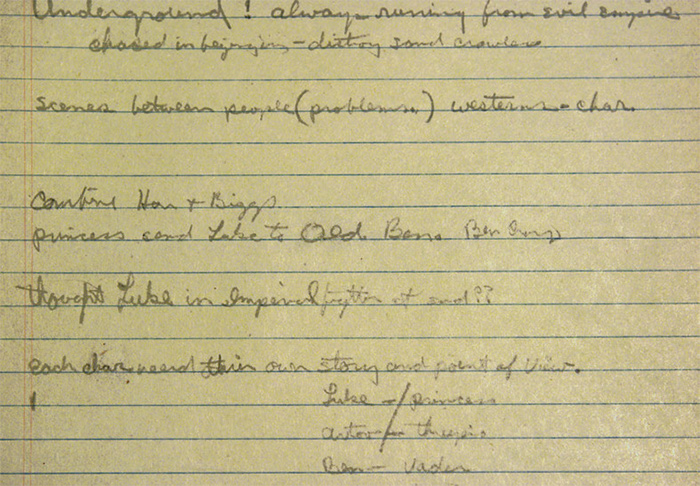 Underground! always running from evil empire
chased in beginging - distroy sand crawlers
scenes between people (problems.) westerns - char.
Combine Han + Biggs
princess send Luke to Old Ben. Ben
thought Luke in Imperial fighter at end??
each char. need thier own story and point of view.
Luke - princess
artoo - threepio
Ben - Vader